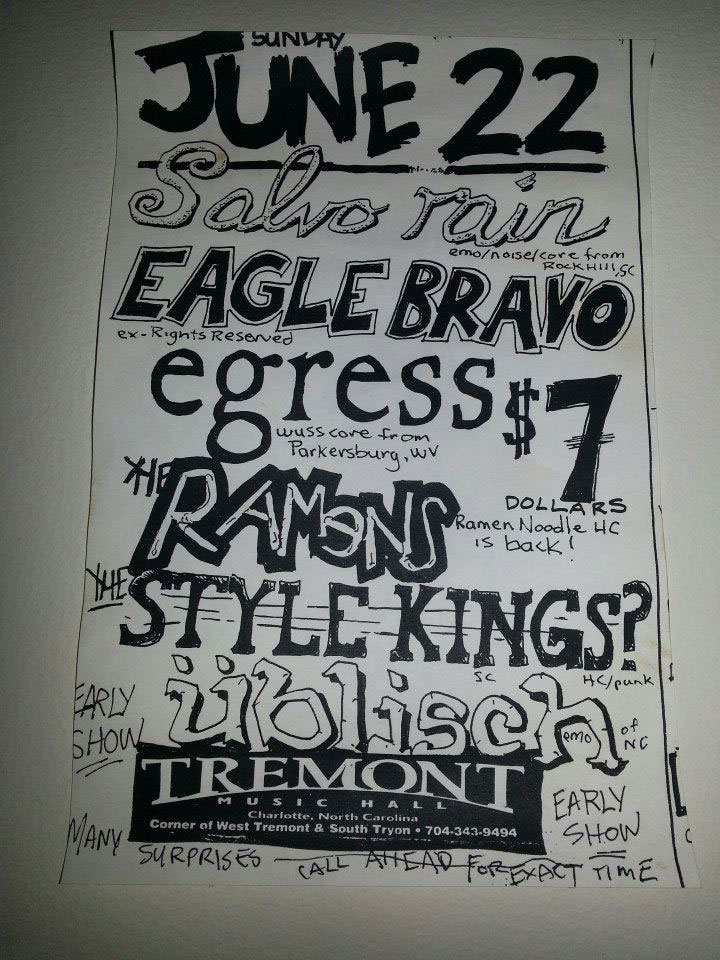 SUNDAY
JUNE 22
Salvo rain
emo/noise/core from
Rock Hill, SC
EAGLE BRAVO
ex-Rights Reserved
egress
$7
wusscore from
Parkersburg, WV
DOLLARS
THE RAMENS
Ramen Noodle HC
is back!
THE STYLE KINGS?
SC
HC/punk
EARLY
SHOW
üblisch
emo
of
NC
TREMONT
MUSIC HALL
Charlotte, North Carolina
Corner of West Tremont & South Tryon • 704-343-9494
EARLY
SHOW
MANY SURPRISES — CALL AHEAD FOR EXACT TIME